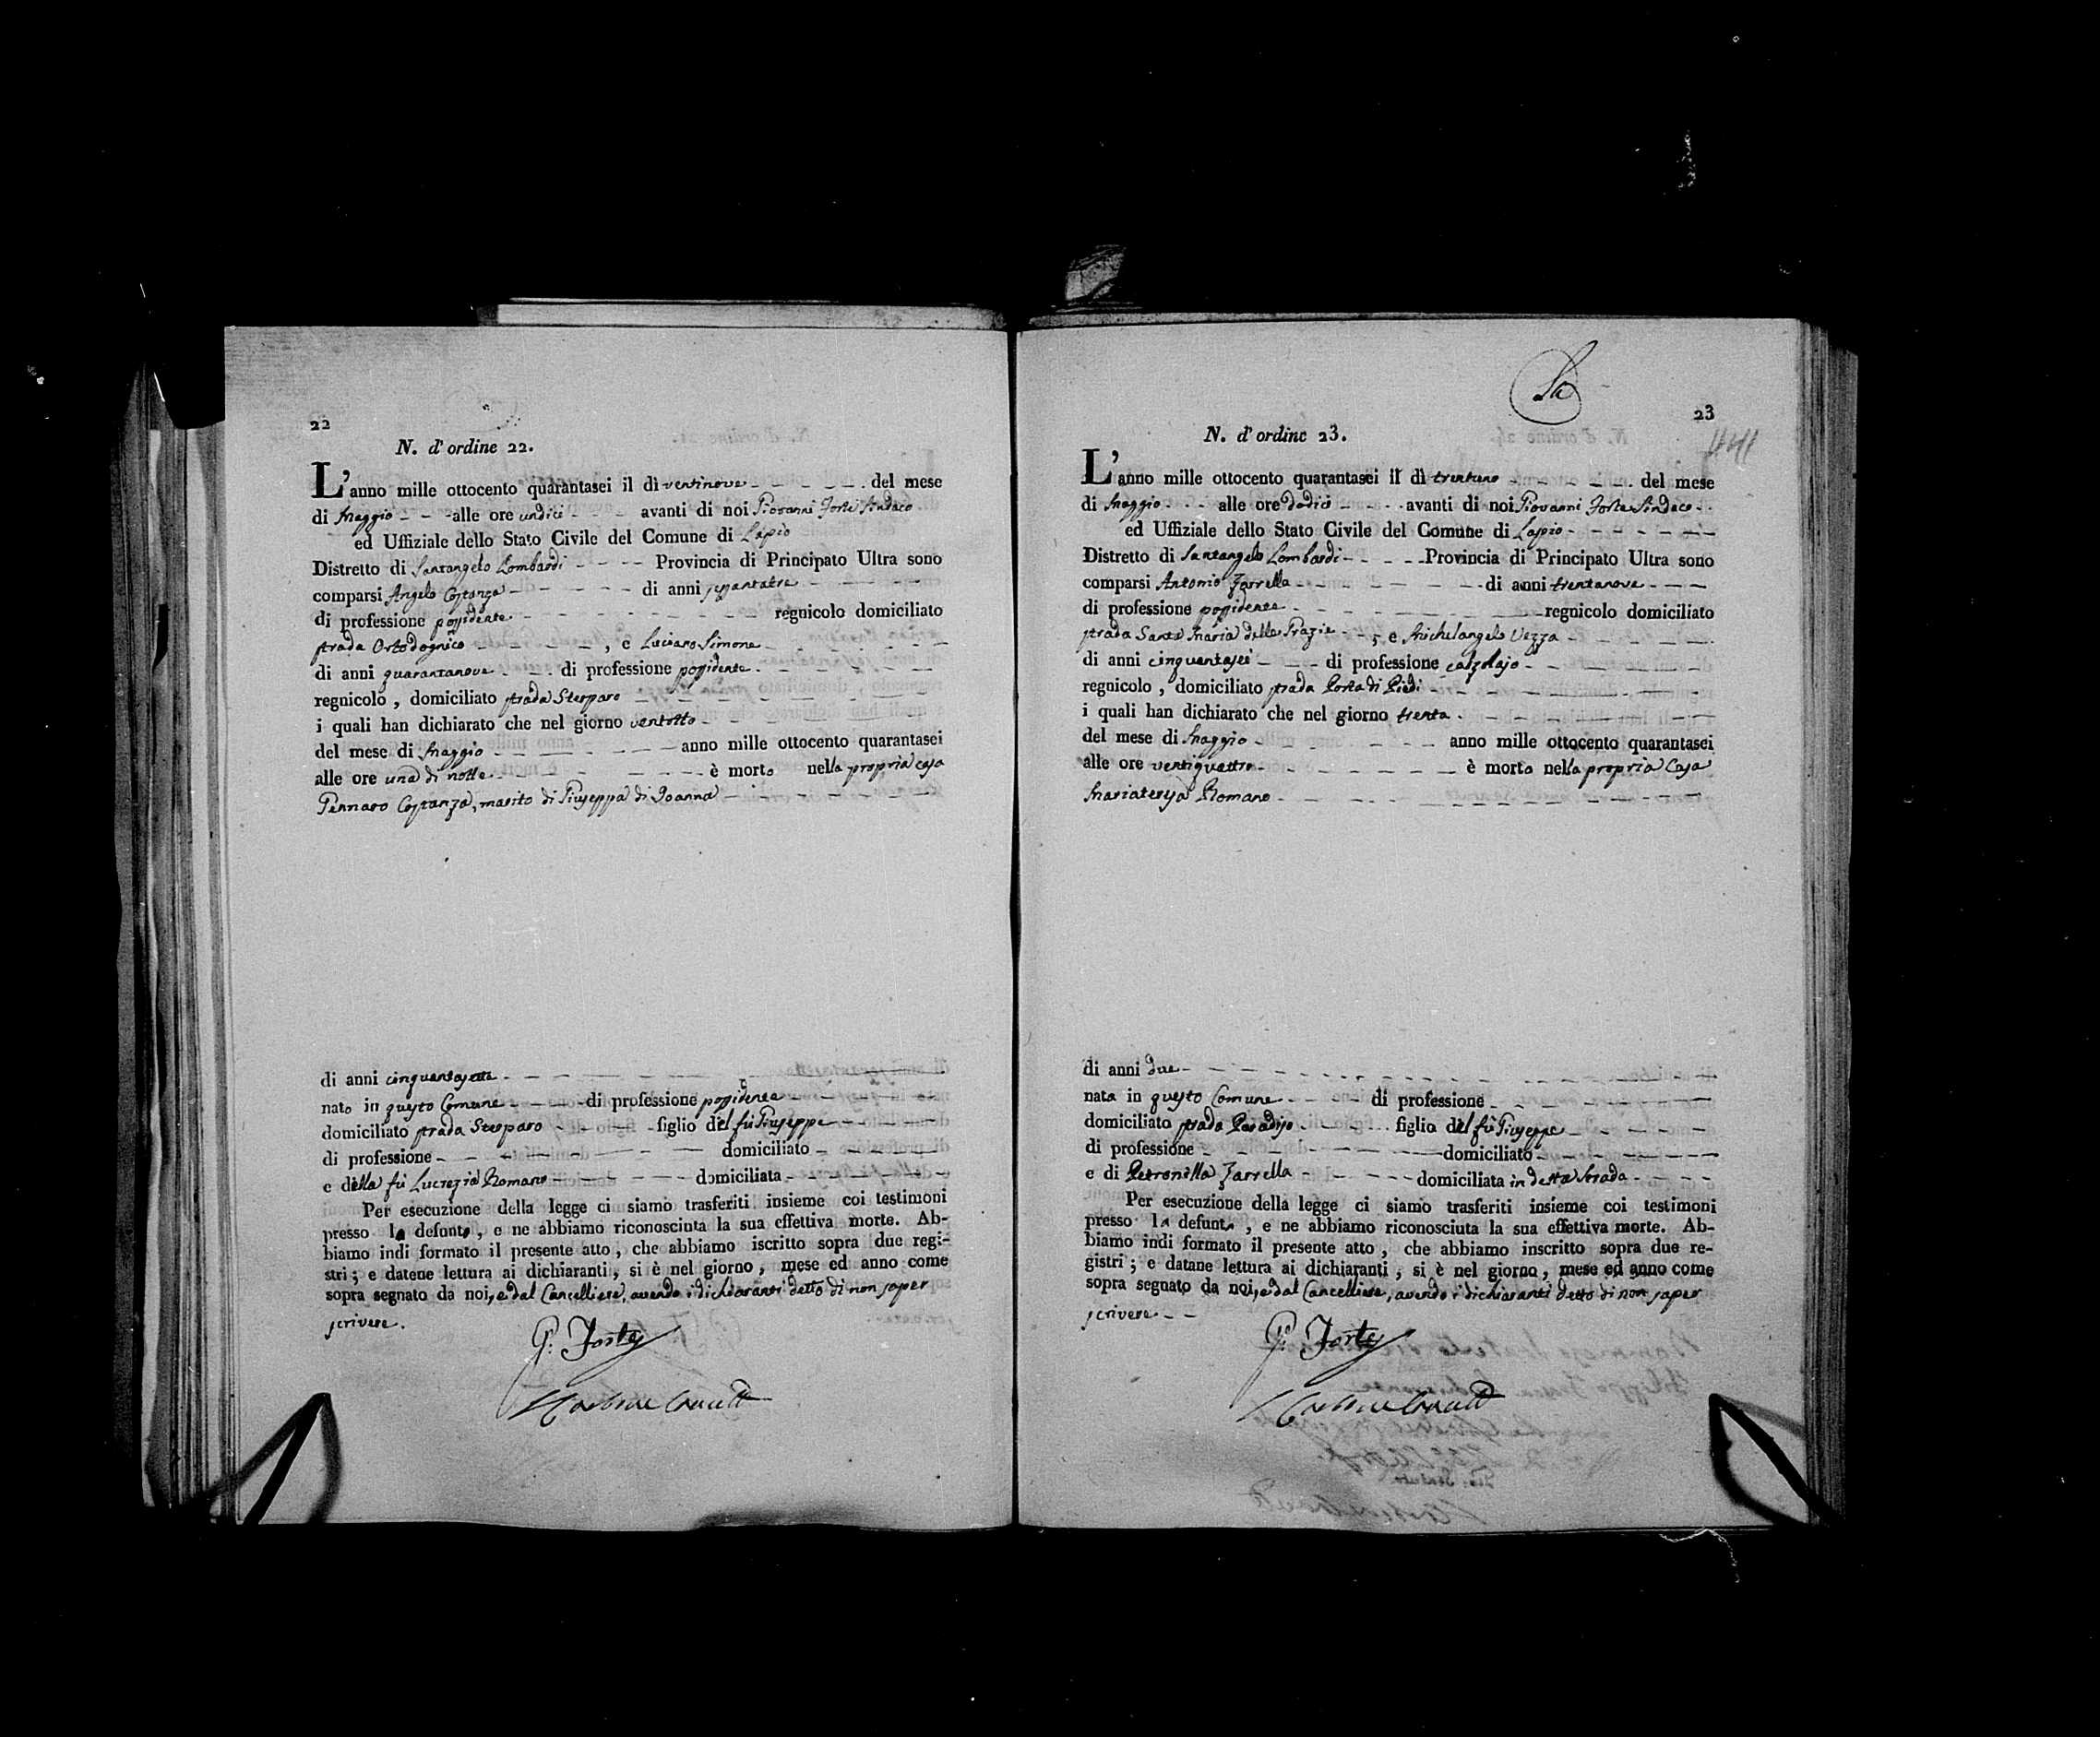 22
N. d'ordine 22.
L'anno mille ottocento quarantasei il dì ventinove del mese
di Maggio alle ore undici avanti di noi Giovanni Forte Sindaco
ed Uffiziale dello Stato Civile del Comune di Lapio
Distretto di Santangelo Lombardi Provincia di Principato Ultra sono
comparsi Angelo Costanza di anni sessantatre
di professione possidente regnicolo domiciliato
strada Ortodognico , e Luciano Simone
di anni quarantanove di professione possidente
regnicolo , domiciliato strada Sterparo
i quali han dichiarato che nel giorno ventotto
del mese di Maggio anno mille ottocento quarantasei
alle ore una di notte è morto nella propria casa
Gennaro Costanza, marito di Giuseppa di Joanna
di anni cinquantasette
nato in questo Comune di professione possidente
domiciliato strada Sterparo figlio del fù Giuseppe
di professione domiciliato
e della fù Lucrezia Romano domiciliata
Per esecuzione della legge ci siamo trasferiti insieme coi testimoni
presso lo defunto , e ne abbiamo riconosciuta la sua effettiva morte. Ab-
biamo indi formato il presente atto , che abbiamo iscritto sopra due regi-
stri ; e datene lettura ai dichiaranti , si è nel giorno , mese ed anno come
sopra segnato da noi, e dal Cancelliere, avendo i dichiaranti detto di non saper
scrivere.
G. Forte
23
N. d'ordine 23.
L'anno mille ottocento quarantasei il dì trentuno del mese
di Maggio alle ore dodici avanti di noi Giovanni Forte Sindaco
ed Uffiziale dello Stato Civile del Comune di Lapio
Distretto di Santangelo Lombardi Provincia di Principato Ultra sono
comparsi Antonio Zarrella di anni trentanove
di professione possidente regnicolo domiciliato
strada Santa Maria delle Grazie , e Michelangelo Vezza
di anni cinquantasei di professione calzolajo
regnicolo , domiciliato strada Porta di Piedi
i quali han dichiarato che nel giorno trenta
del mese di Maggio anno mille ottocento quarantasei
alle ore ventiquattro è morta nella propria Casa
Mariateresa Romano
di anni due
nata in questo Comune di professione
domiciliato strada Paradiso figlia del fù Giuseppe
di professione domiciliato
e di Petronilla Zarrella domiciliata in detta Strada
Per esecuzione della legge ci siamo trasferiti insieme coi testimoni
presso la defunta , e ne abbiamo riconosciuta la sua effettiva morte. Ab-
biamo indi formato il presente atto , che abbiamo inscritto sopra due re-
gistri ; e datane lettura ai dichiaranti , si è nel giorno , mese ed anno come
sopra segnato da noi, e dal Cancelliere, avendo i dichiaranti detto di non saper
scrivere
G. Forte